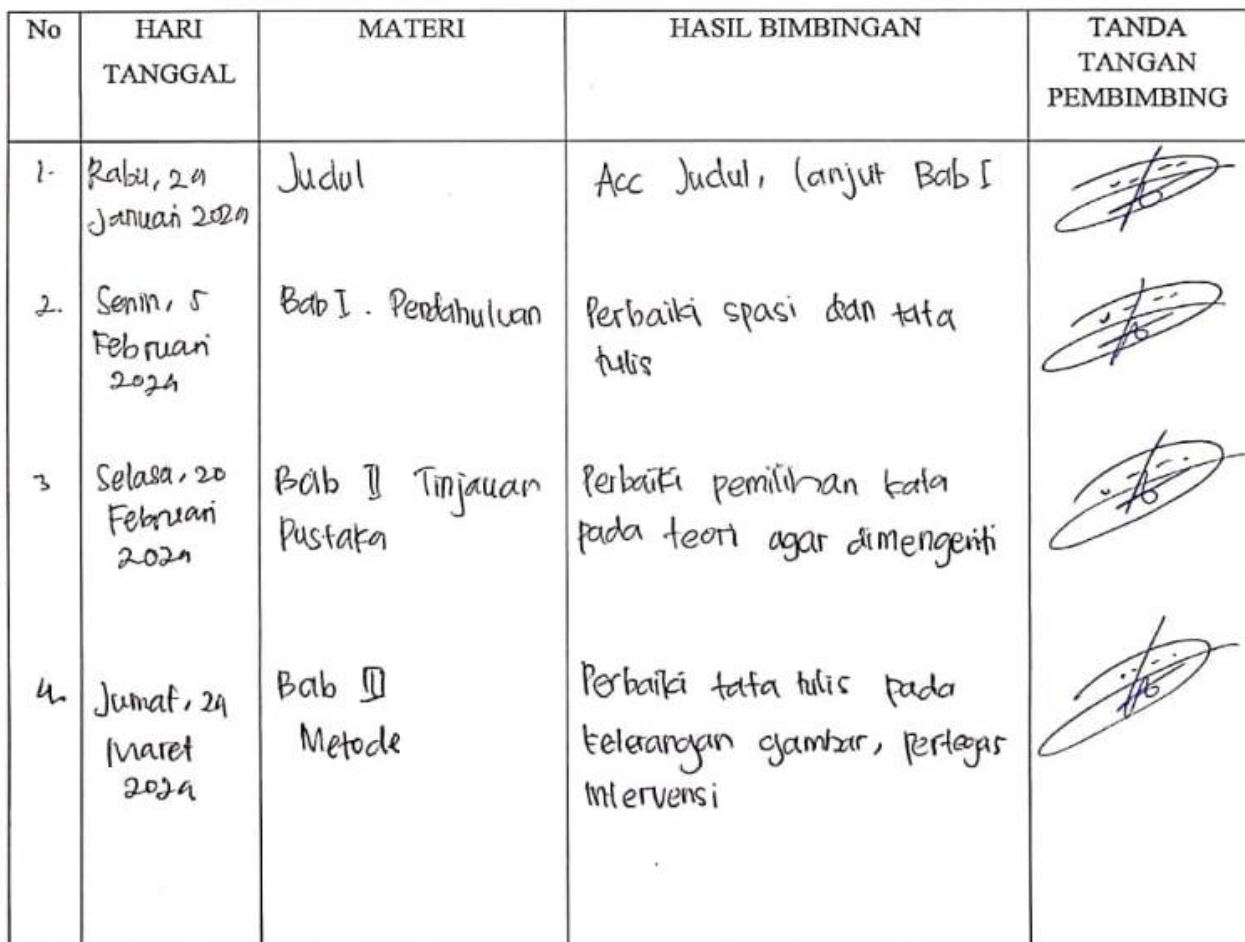 No
HARI
TANGGAL
MATERI
HASIL BIMBINGAN
TANDA
TANGAN
PEMBIMBING
1.
Rabu, 24
Januari 2024
Judul
Acc Judul, lanjut Bab I
2.
Senin, 5
Februari
2024
Bab I. Pendahuluan
Perbaiki spasi dan tata
tulis
3
Selasa, 20
Februari
2024
Bab II Tinjauan
Pustaka
Perbaiki pemilihan kata
pada teori agar dimengerti
4.
Jumat, 24
Maret
2024
Bab III
Metode
Perbaiki tata tulis pada
keterangan gambar, pertegas
Intervensi